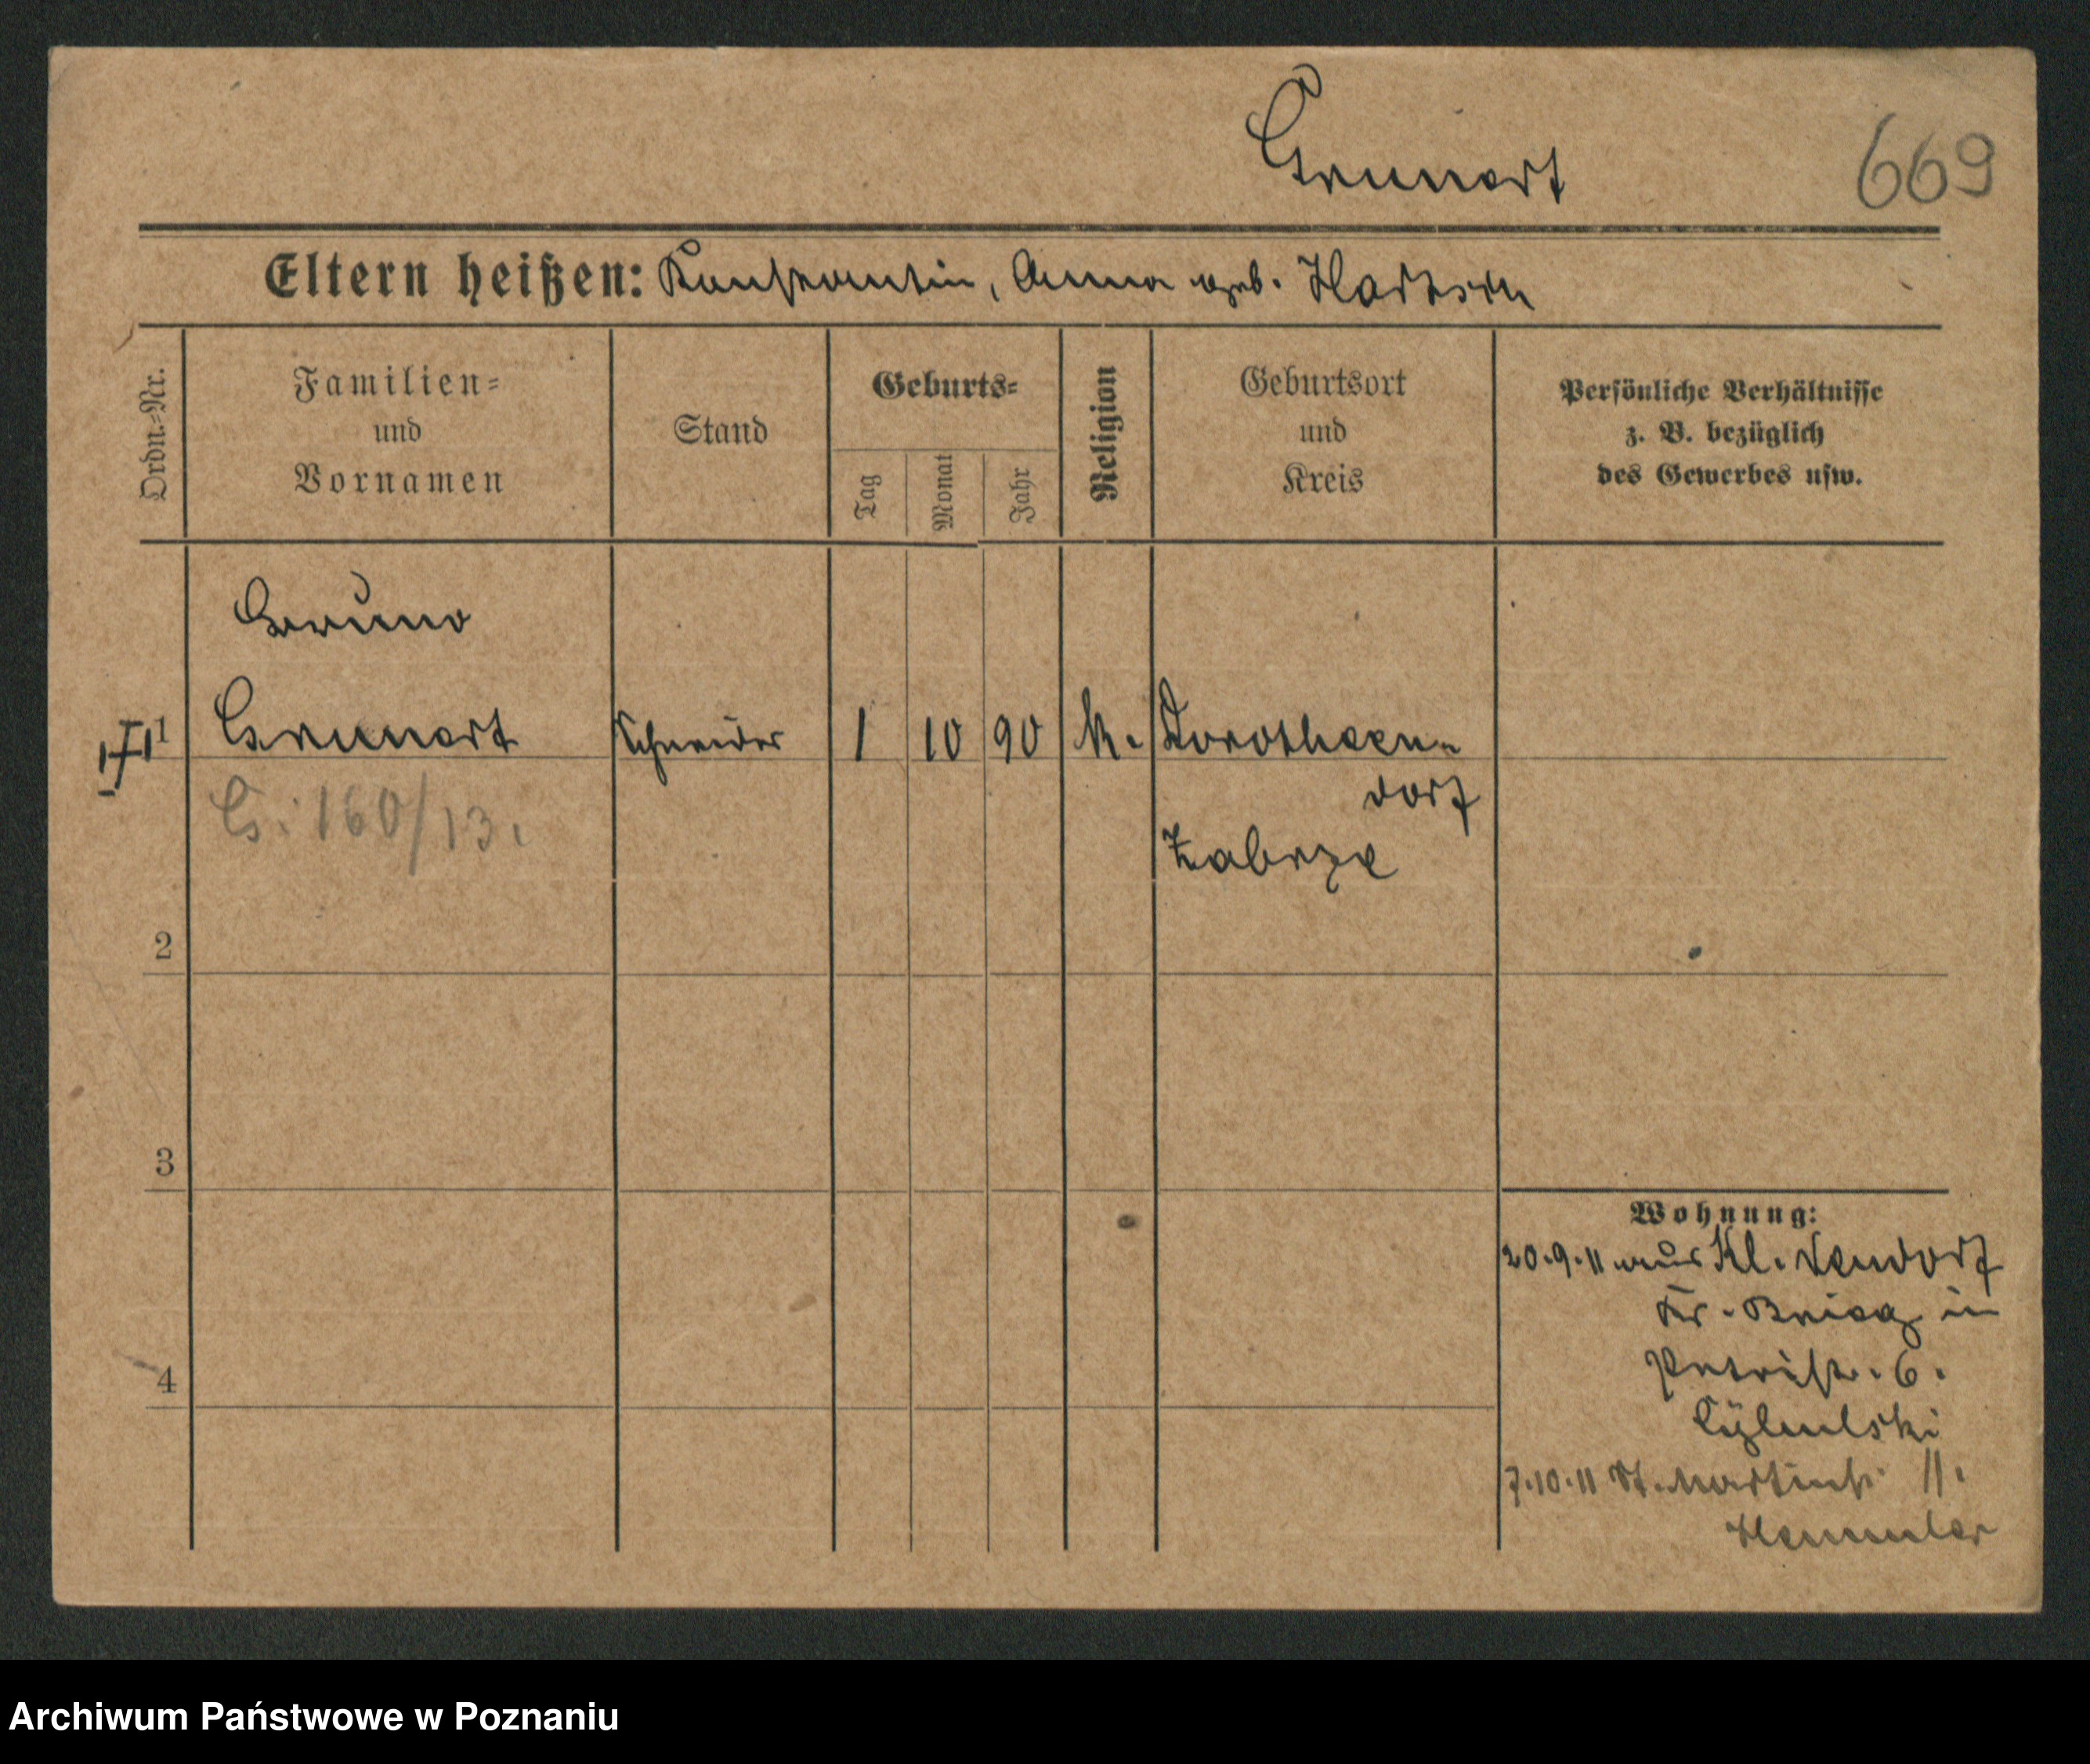 Grunert
669
Eltern heißen: Konstantin, Anna geb.
Ordn.-Nr.
Familien-
und
Vornamen
Stand
Geburts-
Tag
Monat
Jahr
Religion
Geburtsort
und
Kreis
Persönliche Verhältnisse
z. B. bezüglich
des Gewerbes usw.
Bruno
1 Grunert Schneider 1 10 90 k. Dorotheen-
dorf
G. 160/13.
Zabrze
2
3
4
Wohnung:
20.9.11 aus Kl. Neudorf
Kr. Brieg in
Petristr. 6.
Cybulski
7.10.11 St. Martinstr. 11.
Archiwum Państwowe w Poznaniu